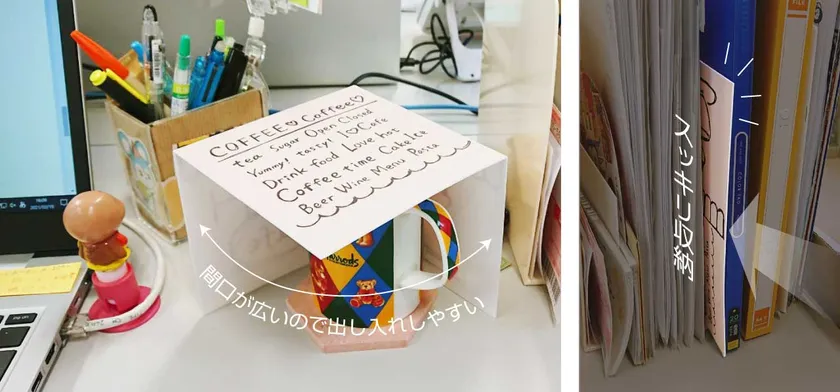 COFFEE♡Coffee♡
tea Sugar Open Closed
Yummy! tasty! I♡Cafe
Drink food Love hot
Coffee time Cake Ice
Beer Wine Menu Pasta
Harrods
間口が広いので出し入れしやすい
スッキリ収納